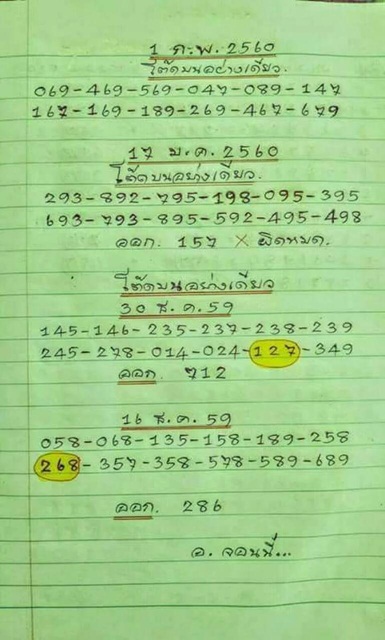 1 ก.พ. 2560
โต๊ดบนอย่างเดียว.
069-469-569-047-089-147
167-169-189-269-467-679
17 ม.ค. 2560
โต๊ดบนอย่างเดียว.
293-892-795-198-095-395
693-793-895-592-495-498
ออก. 157 × ผิดหมด.
โต๊ดบนอย่างเดียว
30 ธ.ค. 59
145-146-235-237-238-239
245-278-014-024-127-349
ออก 712
16 ธ.ค. 59
058-068-135-158-189-258
268-357-358-578-589-689
ออก. 286
อ. จอนนี่...